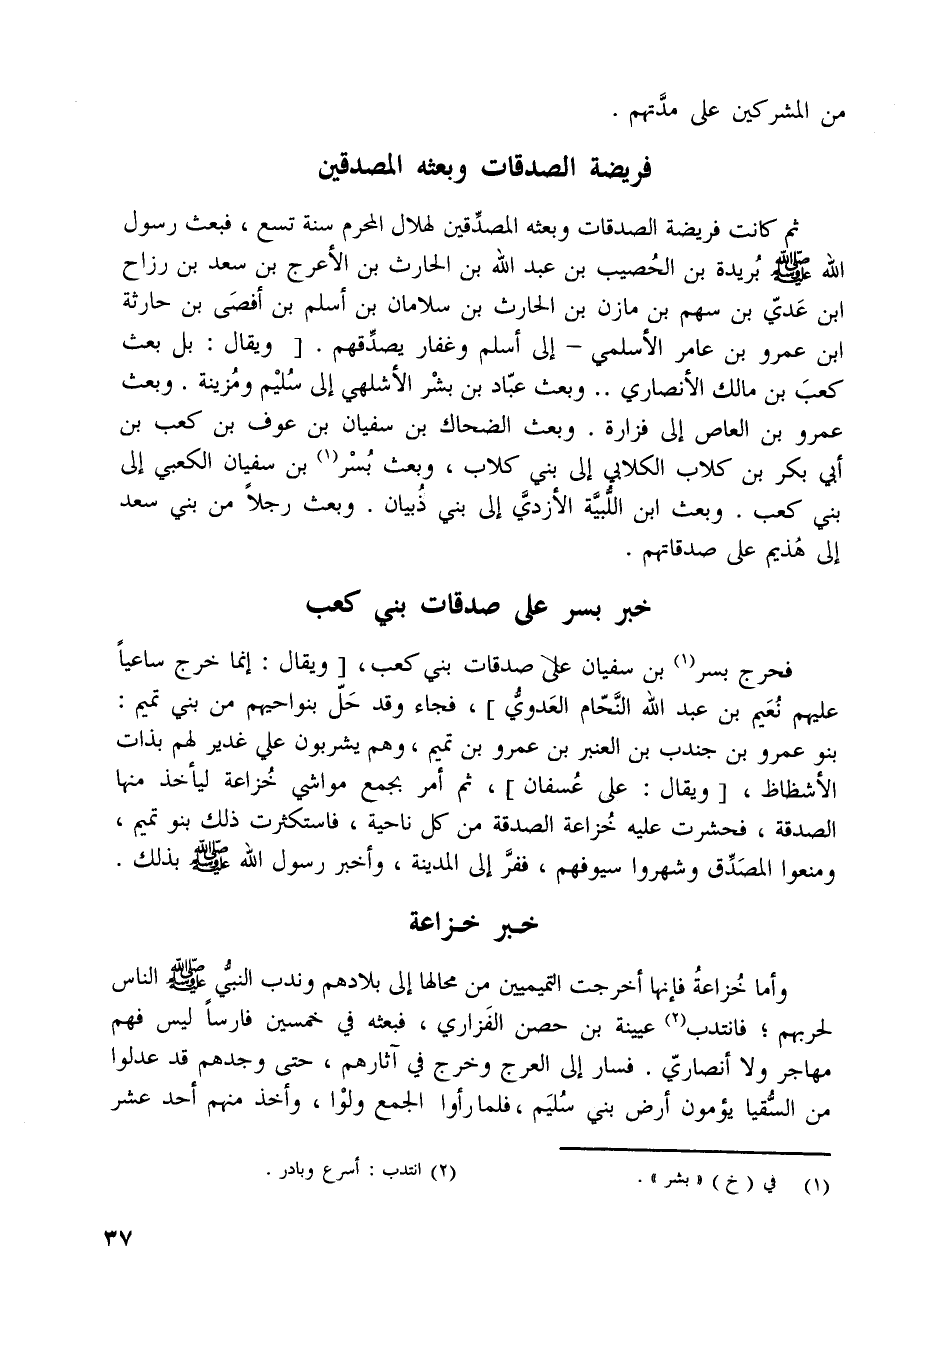 من المشركين على مدَّتهم .
فريضة الصدقات وبعثه المصدقين
ثم كانت فريضة الصدقات وبعثه المصدِّقين لهلال المحرم سنة تسع ، فبعث رسول
الله ﷺ بُريدة بن الحُصيب بن عبد الله بن الحارث بن الأعرج بن سعد بن رزاح
ابن عَديّ بن سهم بن مازن بن الحارث بن سلامان بن أسلم بن أفصَى بن حارثة
ابن عمرو بن عامر الأسلمي – إلى أسلم وغفار يصدِّقهم . [ ويقال : بل بعث
كعبَ بن مالك الأنصاري .. وبعث عبّاد بن بشْر الأشلهي إلى سُليْم ومُزينة . وبعث
عمرو بن العاص إلى فزارة . وبعث الضحاك بن سفيان بن عوف بن كعب بن
أبي بكر بن كلاب الكلابي إلى بني كلاب ، وبعث بُسْر(١) بن سفيان الكعبي إلى
بني كعب . وبعث ابن اللُّبيَّة الأزديَّ إلى بني ذُبيان . وبعث رجلاً من بني سعد
إلى هُذيم على صدقاتهم .
خبر بسر على صدقات بني كعب
فحرج بسر(١) بن سفيان على صدقات بني كعب، [ ويقال : إنما خرج ساعياً
عليهم نُعَيم بن عبد الله النَّحّام العَدويُّ ] ، فجاء وقد حَلّ بنواحيهم من بني تميم :
بنو عمرو بن جندب بن العنبر بن عمرو بن تميم ، وهم يشربون على غدير لهم بذات
الأشظاظ ، [ ويقال : على عُسفان ] ، ثم أمر بجمع مواشي خُزاعة ليأخذ منها
الصدقة ، فحشرت عليه خُزاعة الصدقة من كل ناحية ، فاستكثرت ذلك بنو تميم ،
ومنعوا المصَدِّق وشهروا سيوفهم ، ففرَّ إلى المدينة ، وأخبر رسول الله ﷺ بذلك .
خبر خزاعة
وأما خُزاعةُ فإنها أخرجت التميميين من محالها إلى بلادهم وندب النبيُّ ﷺ الناس
لحربهم ؛ فانتدب(٢) عيينة بن حصن الفَزاري ، فبعثه في خمسين فارساً ليس فهم
مهاجر ولا أنصاريّ . فسار إلى العرج وخرج في آثارهم ، حتى وجدهم قد عدلوا
من السُّقيا يؤمون أرض بني سُليَم ،فلما رأوا الجمع ولوْا ، وأخذ منهم أحد عشر
(١) في ( خ ) « بشر » .
(٢) انتدب : أسرع وبادر .
٣٧